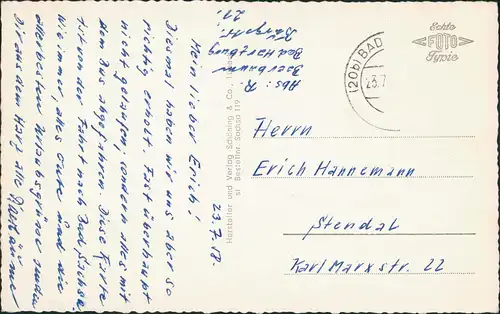 Abs: R.
Beerbaum
Bad Harzburg
Bärgstr.
21.
23.7.58.
Mein lieber Erich!
Diesmal haben wir uns aber so
richtig erholt. Fast überhaupt
nicht gelaufen, sondern alles mit
dem Bus abgefahren. Diese Karte
ist von der Fahrt nach Bad Sachsa.
Wie immer, alles Gute und die
allerbesten Urlaubsgrüße senden
Dir aus dem Harz alle
Hersteller und Verlag Schöning & Co.,
Bestellnr. Sachsa 119
(20b) BAD
23.7
Echte
FOTO
Typie
Herrn
Erich Hannemann
Stendal
Karl Marxstr. 22